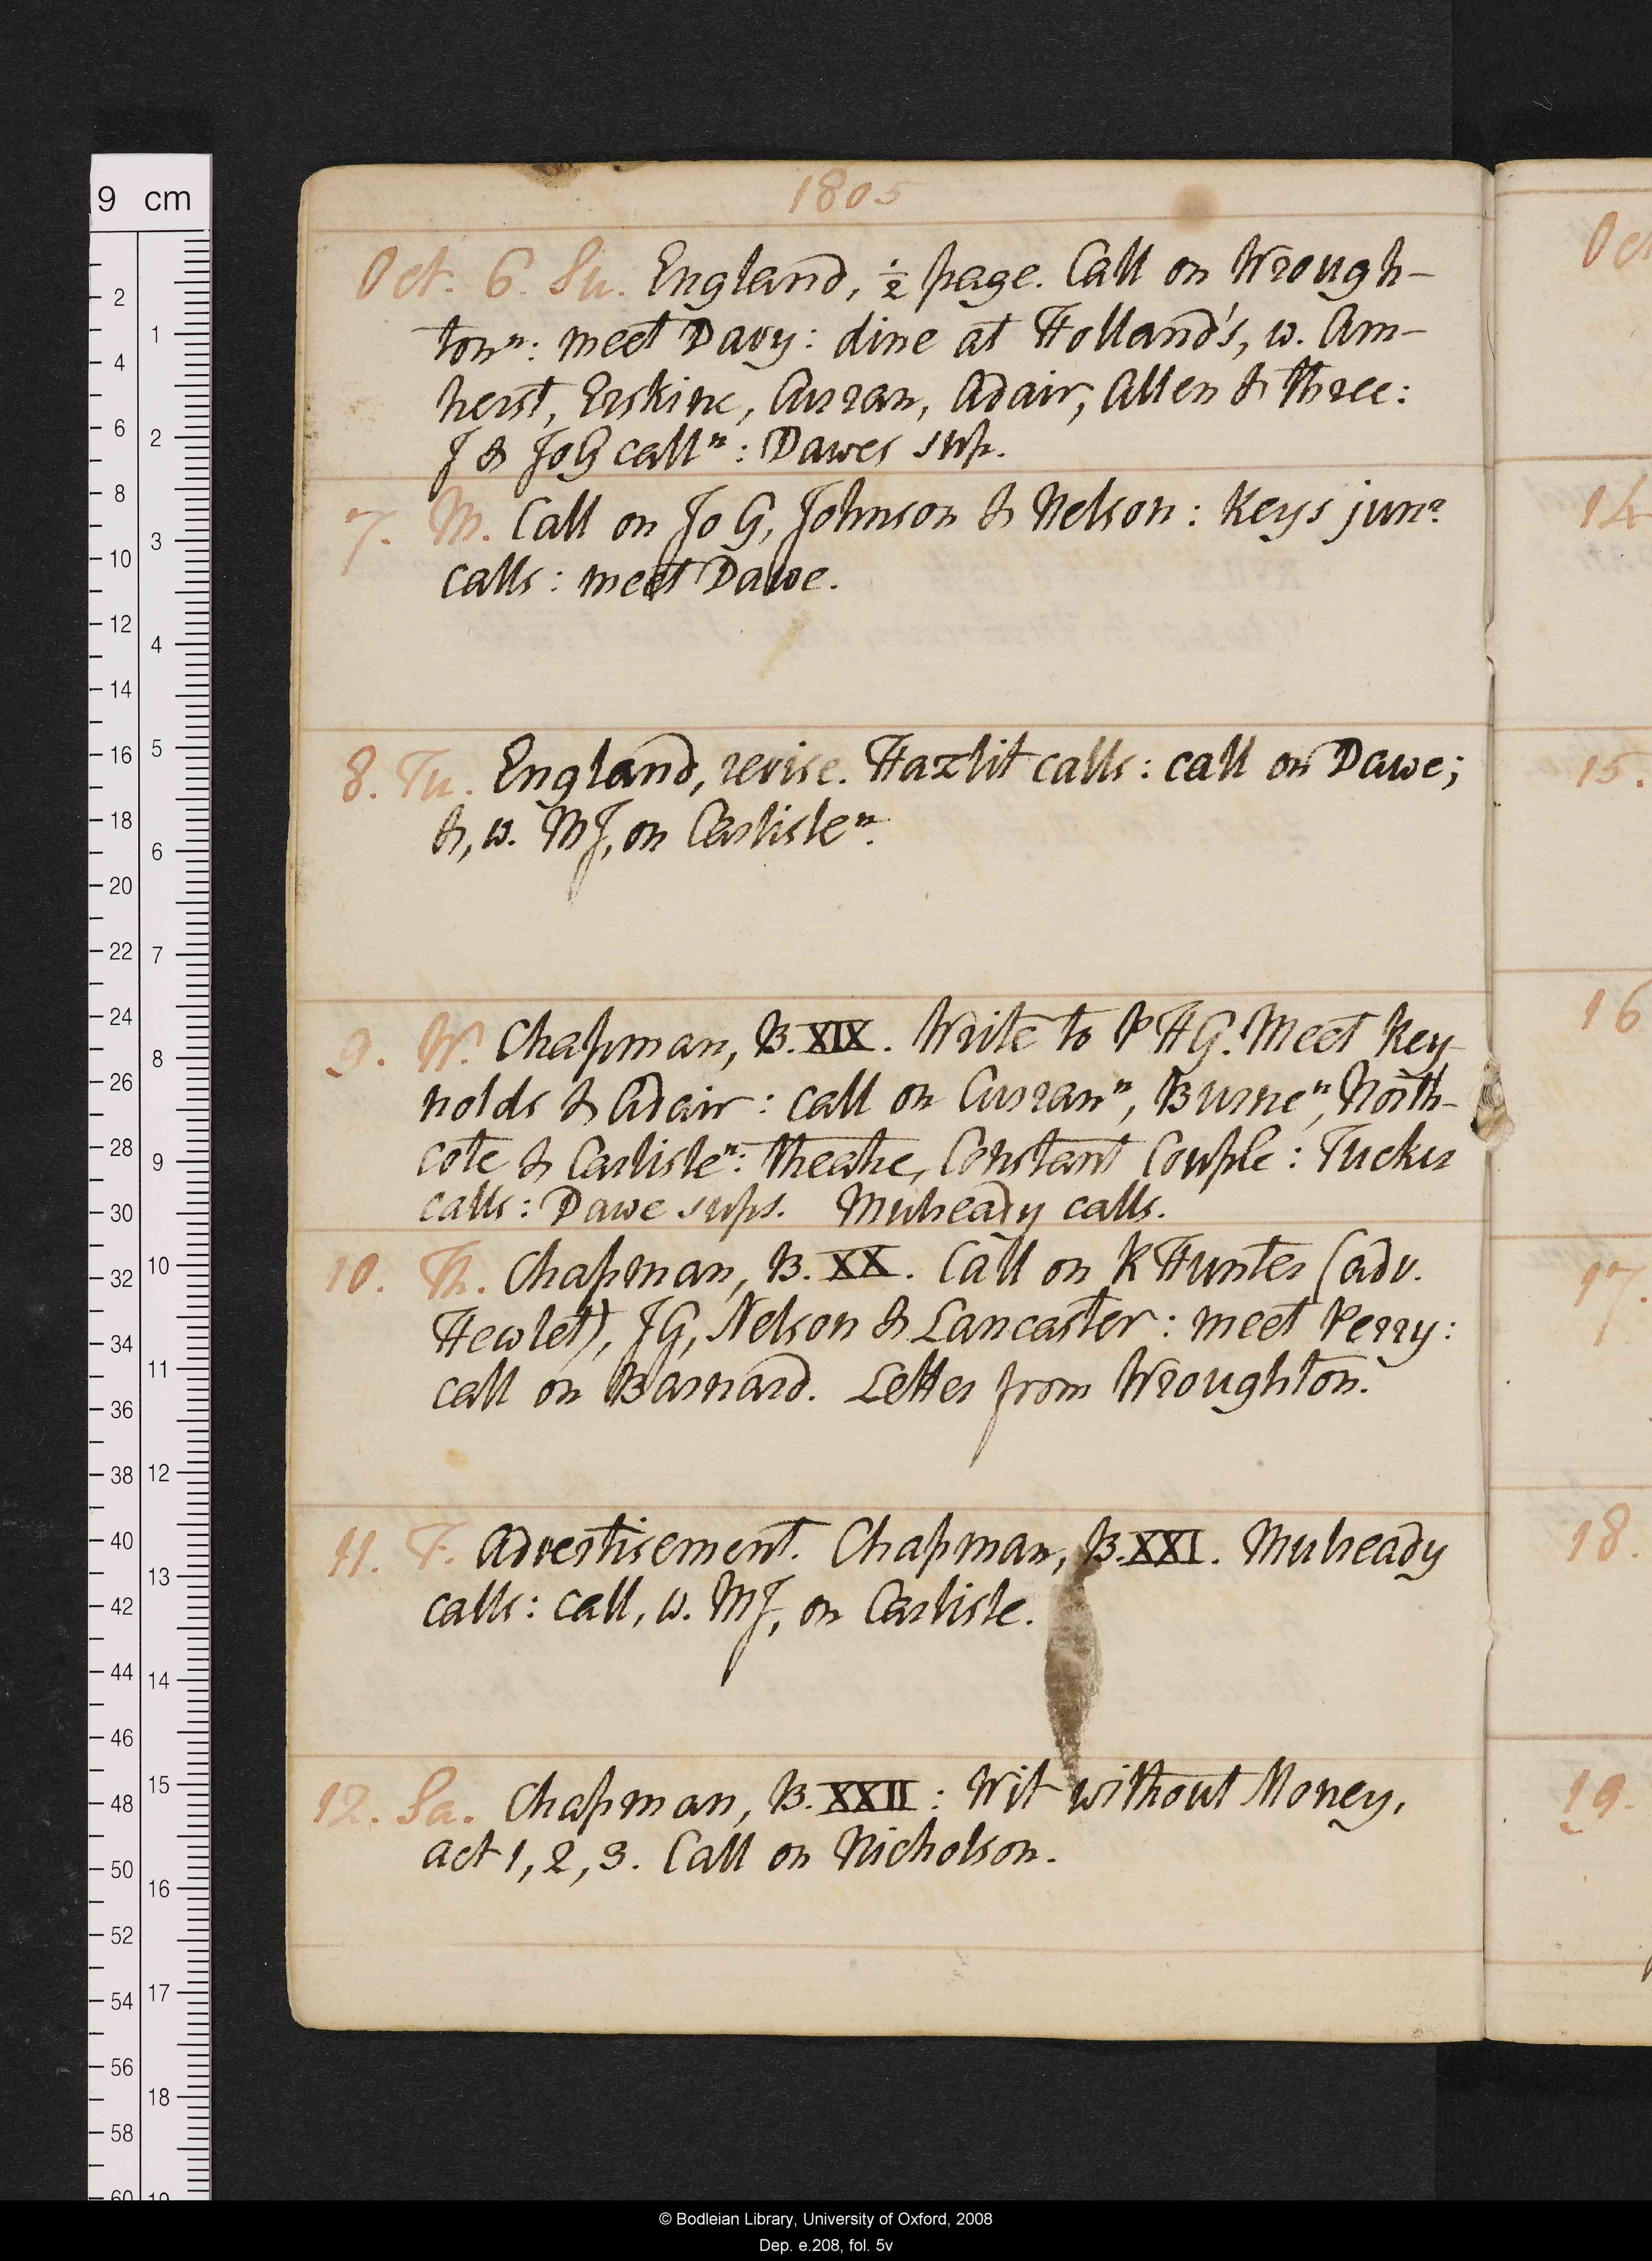 1805
Oct. 6. Su. England, ½ page. Call on Wrough-
tonⁿ: meet Davy: dine at Holland's, w. Am-
herst, Erskine, Curran, Adair, Allen & three:
J & JoG callⁿ: Dawes sup.
7. M. Call on Jo G, Johnson & Nelson: Keys junr
calls: meet Dawe.
8. Tu. England, revise. Hazlit calls: call on Dawe;
&, w. MJ, on Carlisleⁿ.
9. W. Chapman, B. XIX. Write to P HG. Meet Rey-
nolds & Adair: call on Curranⁿ, Burneⁿ, North-
cote & Carlisleⁿ: theatre, Constant Couple: Tucker
calls: Dawe sups. Mulready calls.
10. Th. Chapman, B. XX. Call on R Hunter (adv.
Hewlet), JG, Nelson & Lancaster: meet Perry:
call on Barnard. Letter from Wroughton.
11. F. Advertisement. Chapman, B. XXI. Mulready
calls: call, w. MJ, on Carlisle.
12. Sa. Chapman, B. XXII: Wit without Money,
act 1, 2, 3. Call on Nicholson.
Oct
14
15.
16
17.
18.
19.
9 cm
2
4
6
8
10
12
14
16
18
20
22
24
26
28
30
32
34
36
38
40
42
44
46
48
50
52
54
56
58
60
1
2
3
4
5
6
7
8
9
10
11
12
13
14
15
16
17
18
19
© Bodleian Library, University of Oxford, 2008
Dep. e.208, fol. 5v